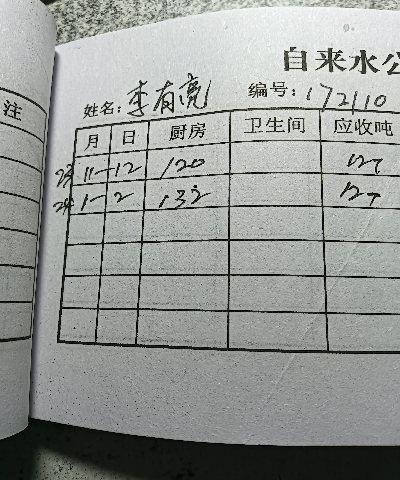 注
自来水公
姓名:李有亮 编号:172110
月 日 厨房 卫生间 应收吨
23 11-12 120 12T
24 1-2 132 12T